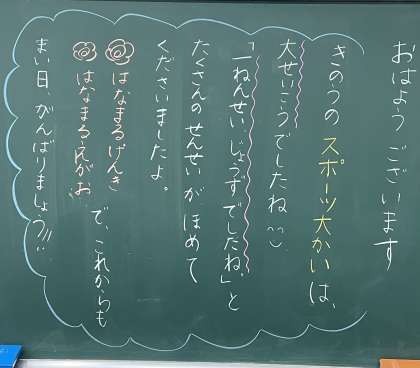 おはようございます
きのうの スポーツ大かいは、
大せいこうでしたね
「一ねんせい、じょうずでしたね。」と
たくさんのせんせいが ほめて
くださいましたよ。
はなまるげんき
はなまるえがお
で、これからも
まい日、がんばりましょう!!